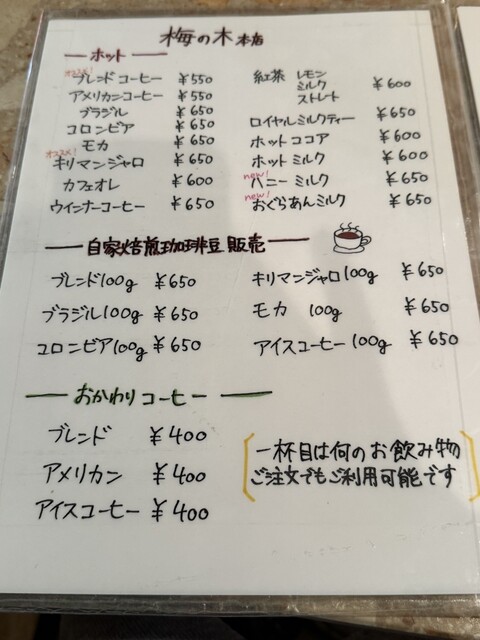 梅の木 本店
ホット
オススメ!
ブレンドコーヒー ¥550
アメリカンコーヒー ¥550
ブラジル ¥650
コロンビア ¥650
モカ ¥650
オススメ!
キリマンジャロ ¥650
カフェオレ ¥600
ウインナーコーヒー ¥650
紅茶 レモン
ミルク ¥600
ストレート
ロイヤルミルクティー ¥650
ホットココア ¥600
ホットミルク ¥600
new!
ハニーミルク ¥650
new!
おぐらあんミルク ¥650
自家焙煎珈琲豆販売
ブレンド100g ¥650
ブラジル100g ¥650
コロンビア100g ¥650
キリマンジャロ100g ¥650
モカ 100g ¥650
アイスコーヒー100g ¥650
おかわりコーヒー
ブレンド ¥400
アメリカン ¥400
アイスコーヒー ¥400
一杯目は何のお飲み物
ご注文でもご利用可能です